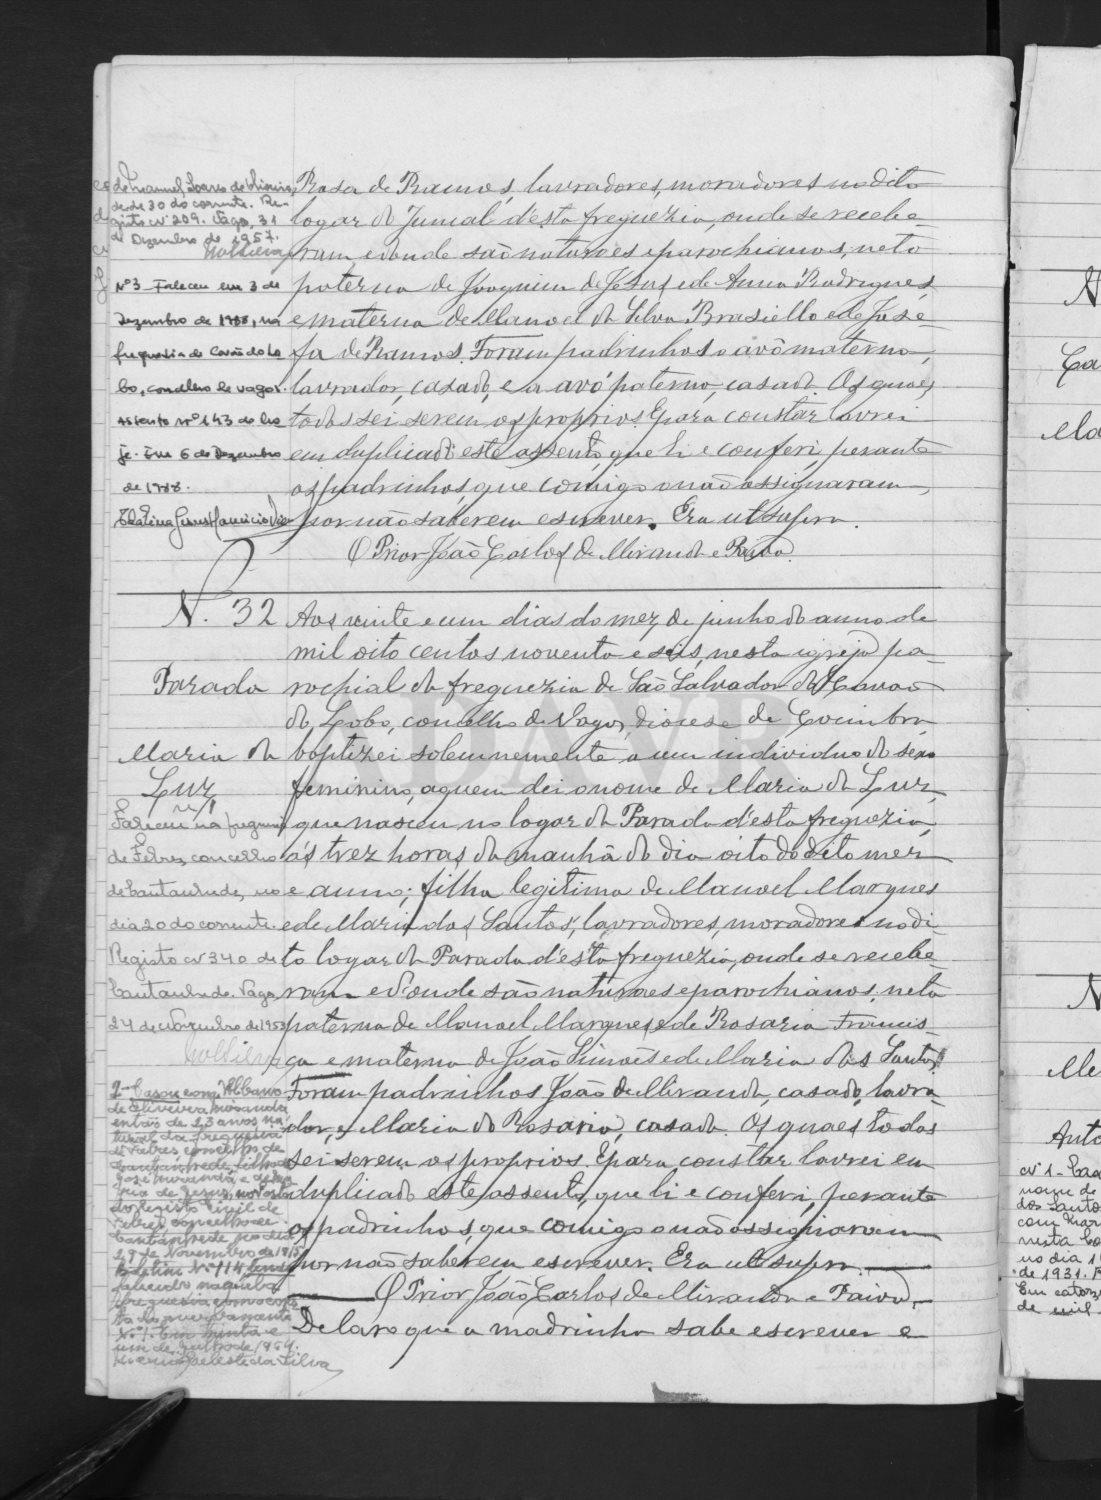 de Manuel
de de 30 do corrente. Re-
gisto nº 209. Vagos, 31
de Dezembro de 1957.
Nº 3 - Faleceu em 3 de
Dezembro de 1988, na
freguesia de Covão do Lo
bo, concelho de Vagos.
Assento nº 143 de ho
je. Em 6 de Dezembro
de 1988.
Rosa de Ramos, lavradores, moradores no dito
logar do Juncal d'esta freguezia, onde se recebe-
ram, e donde são naturaes e parochianos; neto
paterno de Joaquim de Jesus e de Anna Rodrigues,
e materno de Manoel da Silva Brasiello e de Jose-
fa de Ramos. Foram padrinhos o avô materno,
lavrador, casado, e a avó paterna, casada. Os quaes
todos sei serem os proprios. E para constar lavrei
em duplicado este assento, que li e conferi perante
os padrinhos, que comigo o não assignaram,
por não saberem escrever. Era ut supra.
O Prior João Carlos de Miranda e Paiva.
N. 32
Parada
Maria da
Luz
Aos vinte e um dias do mez de junho do anno de
mil oito centos noventa e seis, nesta igreja pa-
rochial da freguezia de São Salvador do Covão
do Lobo, concelho de Vagos, diocese de Coimbra
baptizei solemnemente a um individuo do sexo
feminino, a quem dei o nome de Maria da Luz,
que nasceu no logar da Parada d'esta freguezia,
ás trez horas da manhã do dia oito do dito mez
e anno; filha legitima de Manoel Marques
e de Maria dos Santos, lavradores, moradores no di-
to logar da Parada d'esta freguezia, onde se recebe-
ram e d'onde são naturaes e parochianos, neta
paterna de Manoel Marques e de Rosaria Francis-
ca e materna de João Simões e de Maria dos Santos.
Foram padrinhos João de Miranda, casado, lavra-
dor, e Maria do Rosario, casada. Os quaes todos
sei serem os proprios. E para constar lavrei em
duplicado este assento, que li e conferi, perante
os padrinhos, que comigo o não assignaram
por não saberem escrever. Era ut supra.
O Prior João Carlos de Miranda e Paiva.
Declaro que a madrinha sabe escrever e
Faleceu na freguesia
de Febres, concelho
de Cantanhede, no
dia 20 do corrente.
Registo nº 340 de
Cantanhede. Vagos,
24 de Novembro de 1953
2 - Casou com Albano
de Oliveira Miranda
então de 23 anos, na
tural da freguesia
de Febres, concelho de
Cantanhede, filho de
José Miranda e de
ria de Jesus, no Posto
do registo civil de
Febres concelho de
Cantanhede no dia
29 de Novembro de 1915
Boletim Nº 114 tendo
falecido naquela
freguesia como cons
ta do averbamento
Nº 1. Em trinta e
um de Julho de 1964.
da Silva
ADAVR
N
Ca
Ma
N
Me
Anto
nº 1 - Cas
nome de
dos Santos
com Mar
nesta Co
no dia 1
de 1931.
Em catorz
de mil